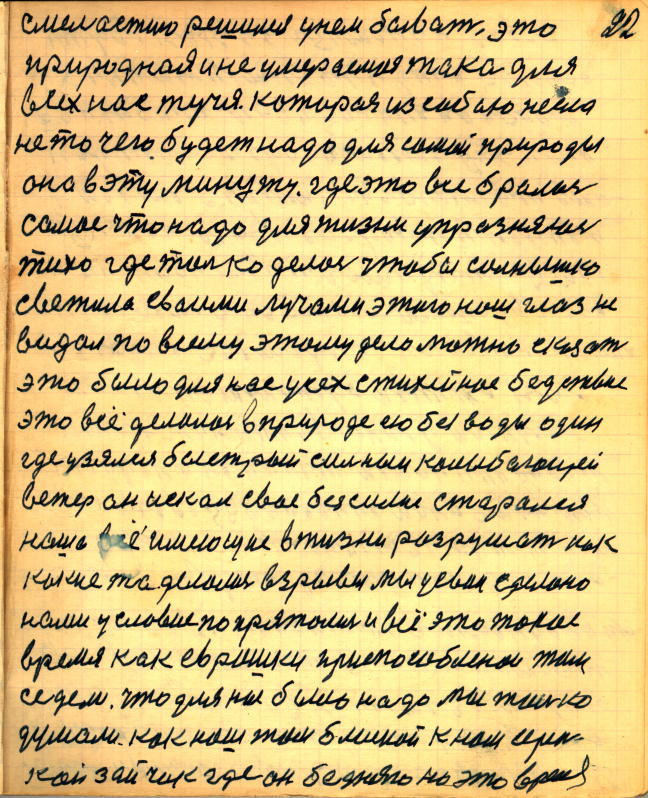 смеластию решился унем бывать, это 22
природная и не умераемая така для
всех нас туча. которая из собаю несла
не то чего будет надо для самой природы
она в эту минуту. где это все бралось
самое что надо для жизни упразнялось
тихо где только делось чтобы солнышко
светила своими лучами этого наш глаз не
видал по всему этому дело можно сказать
это было для нас усех стихейное бедствие
это всё делолось в природе ею без воды один
где узялся быстрый силный колыбающей
ветер он искал свое безсилие старался
наша всё имеющие в жизни разрушать как
какие та делолись взрывы мы
нами условие попрятались и всё это такое
время как еврашки приспособлено там
седели. что для нас было надо мы только
думали. как наш там близкой к нам серин-
кой зайчик где он бедняга на это время